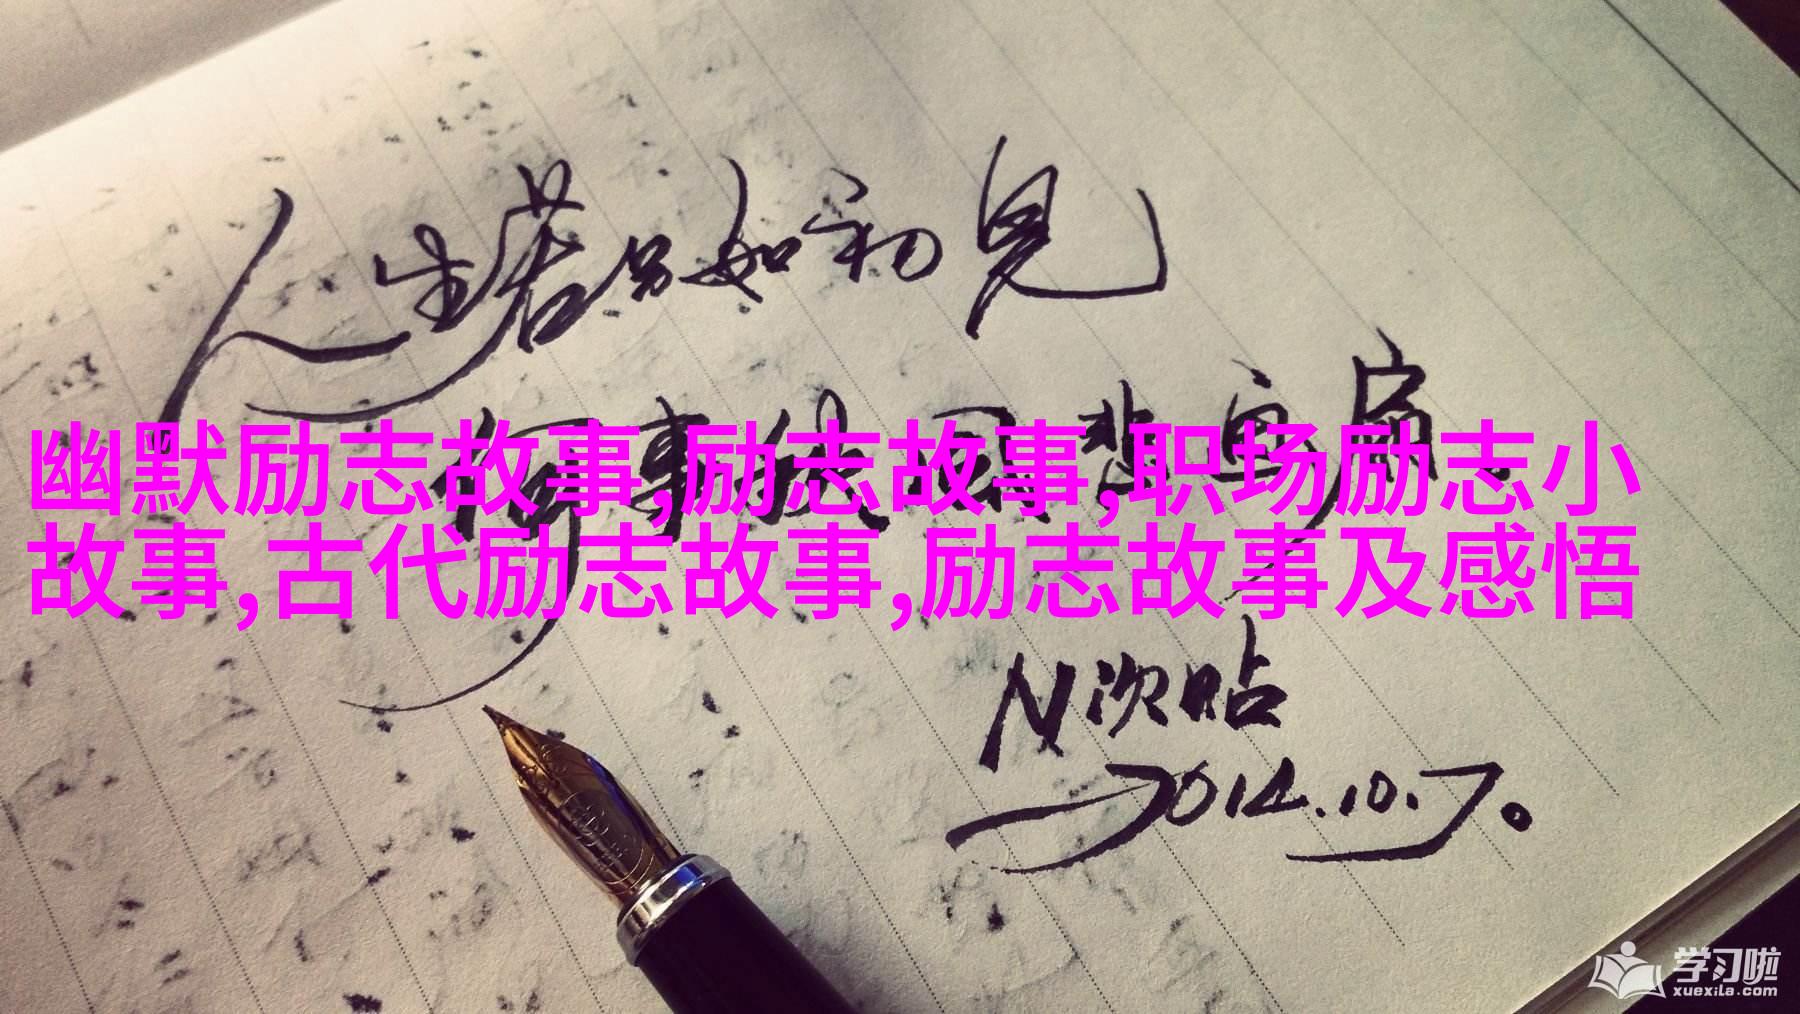 人生若只如初见
何事秋风悲画扇。
幽默励志故事,励志故事,职场励志小
故事,古代励志故事,励志故事及感悟
N次贴
2014.10.7。
学习啦
xuexila.com